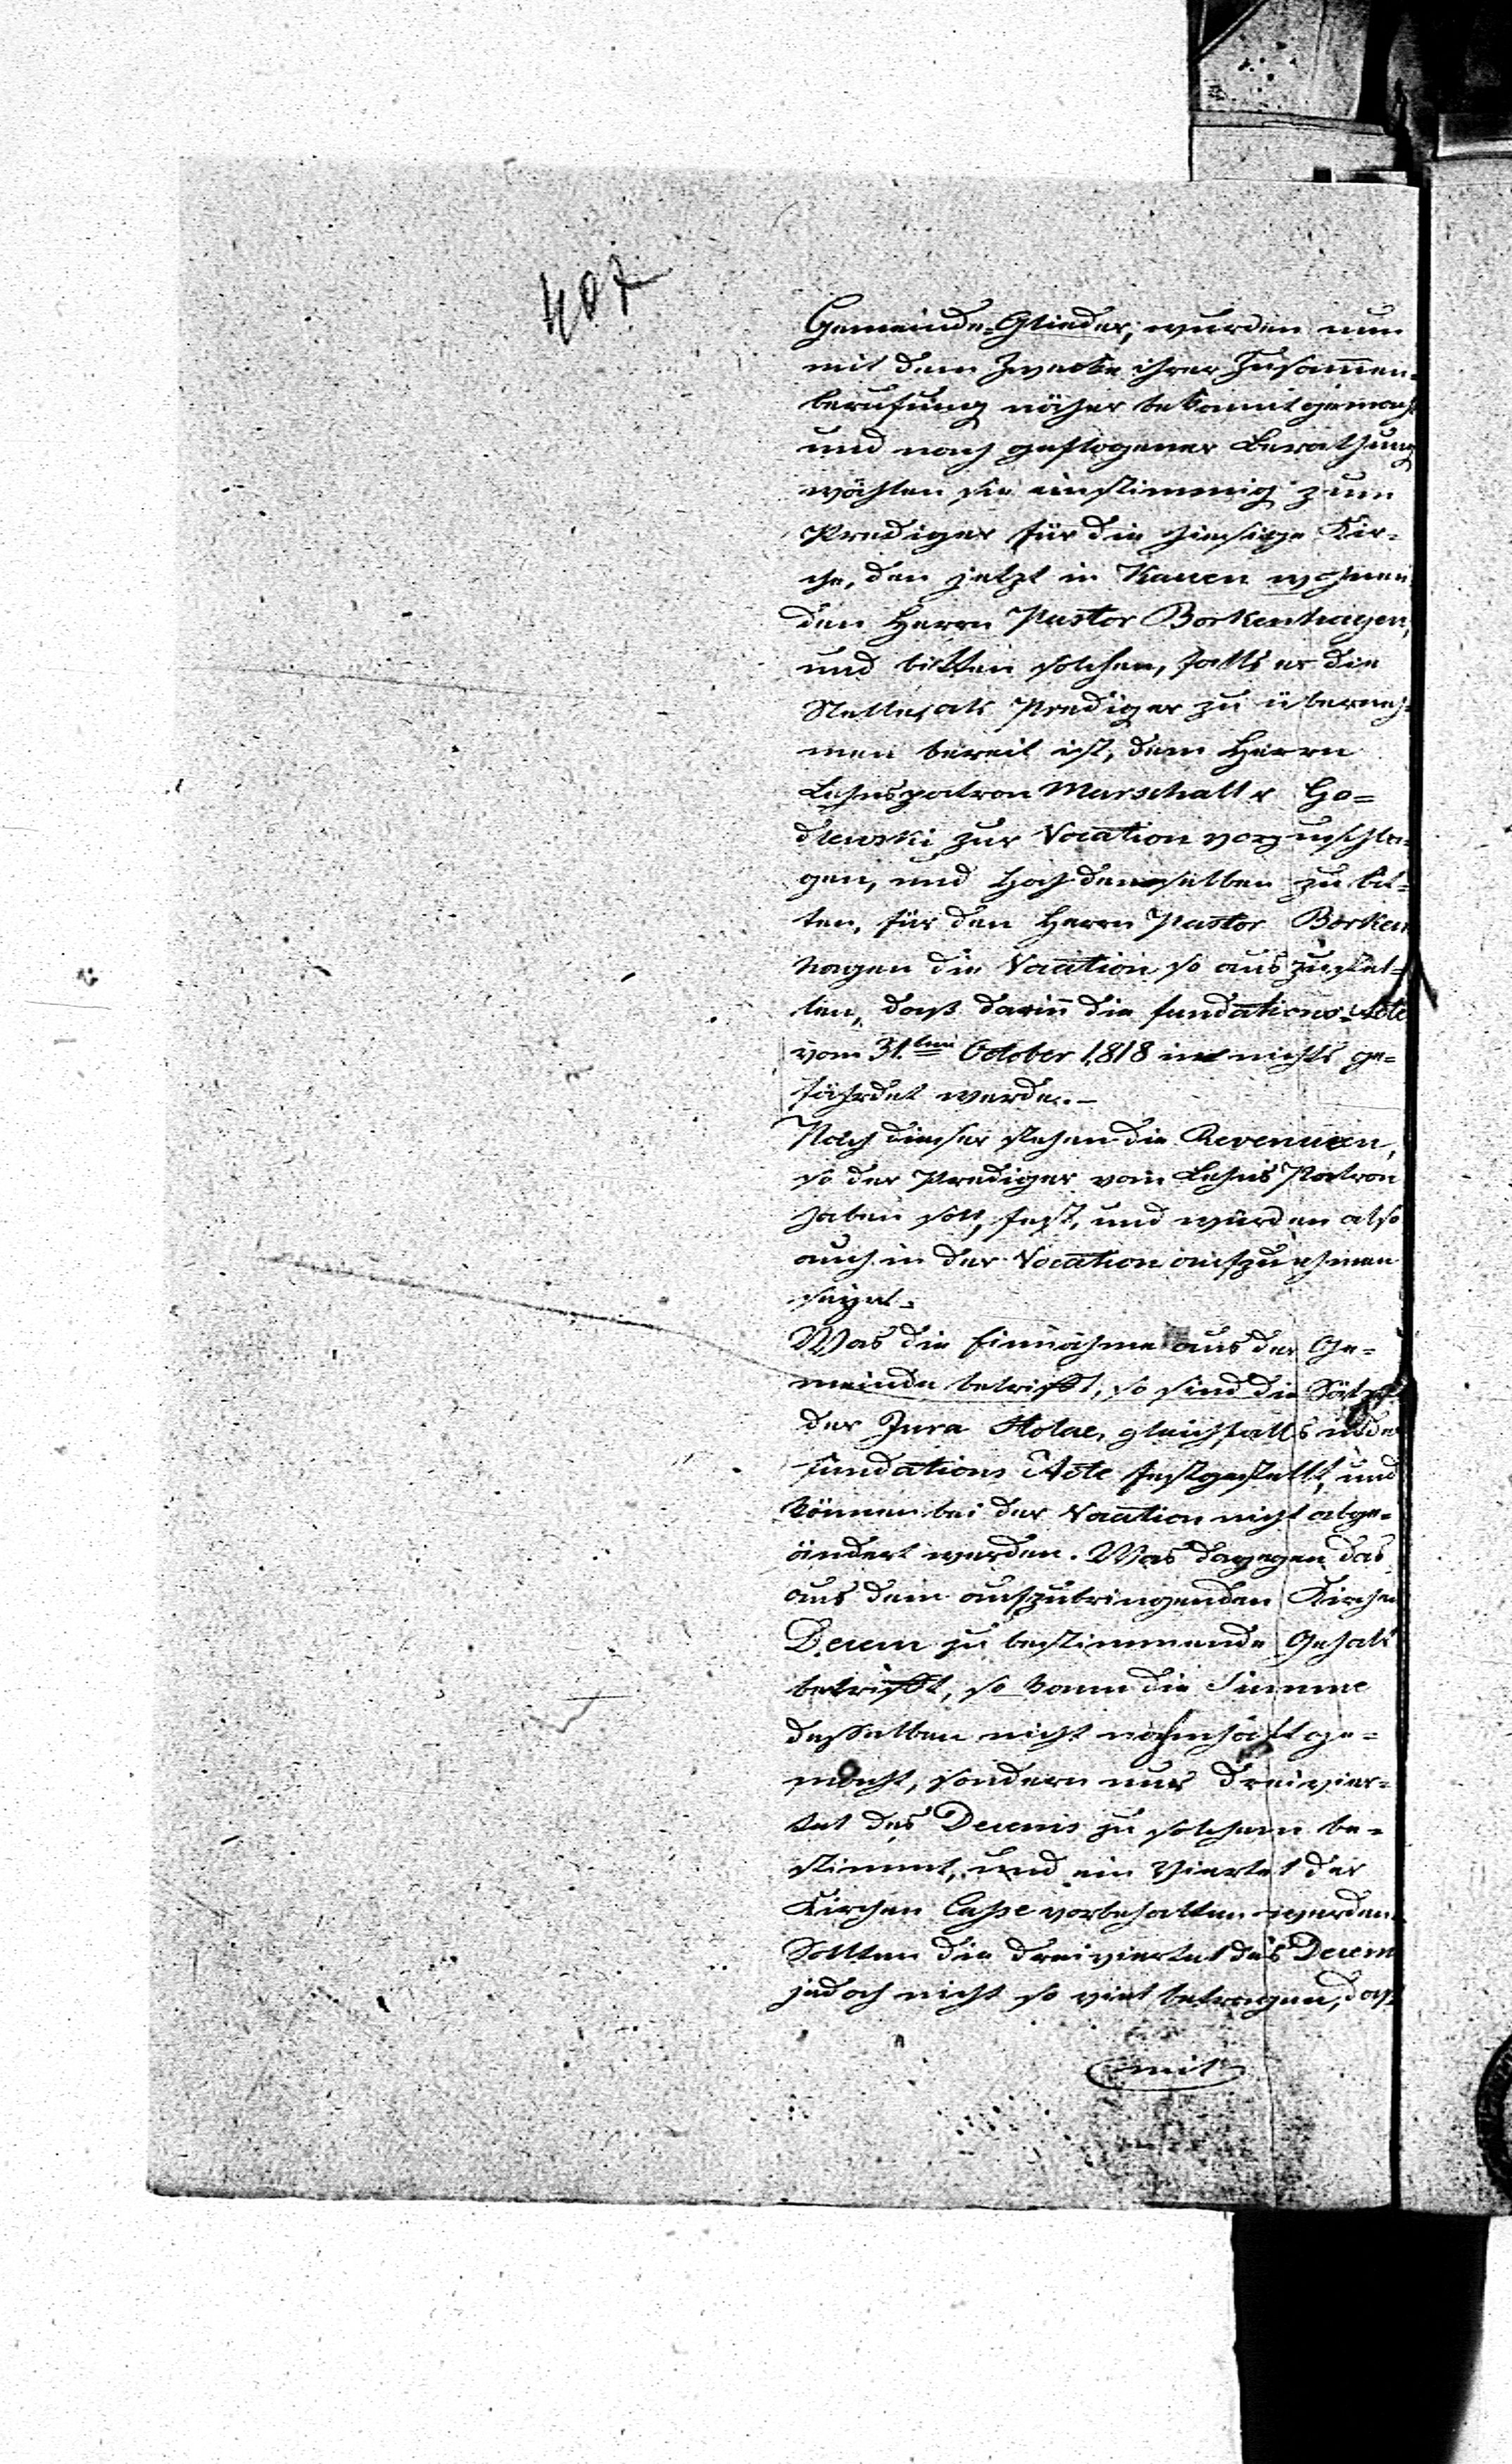 407
Gemeinde-Glieder, wurden nun
mit dem Zwecke ihrer Zusam̅en-
berufung näher bekannt gemacht
und nach gepflogener Berathung
wählen sie einstimmig zum
Prediger für die hiesige Kir-
che, den jetzt in Kauen wohnen
den Herrn Pastor Borkenhagen,
und bitten solchen, falls er die
Stelle, als Prediger zu überneh-
men bereit ist, dem Herrn
Lehnspatron Marschall v Go=
dlewski zur Vocation vorzuschla-
gen, und Hochdenselben zu bit-
ten, für den Herrn Pastor Borken
hagen die Vocation so auszustel-
len, daß darin̅ die fundations-Acte
vom 31.ten October 1818 in nichts ge-
fährdet werde.-
Nach dieser stehen die Revenuen,
so der Prediger vom Lehns Patron
haben soll, fest, und würden also
auch in der Vocation aufzunehmen
seyn.
Was die Einnahme aus der Ge-
meinde betrifft, so sind die Sätze
der Jura Stolae, gleichfalls in der
fundations Acte festgestellt, und
können bei der Vocation nicht abge-
ändert werden. Was dagegen das
aus dem aufzubringenden Kirchen
Decem zu bestimmende Gehalt
betrifft, so kann die Summe
desselben nicht nahmhaft ge-
macht, sondern nur dreivier-
tel des Decems zu solchem be-
stimmt, und ein Viertel der
Kirchen Casse vorbehalten werden.
Sollten die dreiviertel des Decem
jedoch nicht so viel betragen, daß
mit